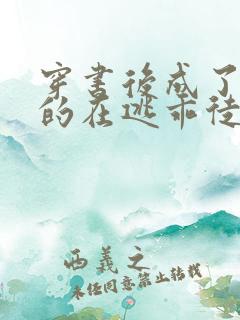 穿书后成了
的在逃乖徒
西義之
未经同意禁止转载